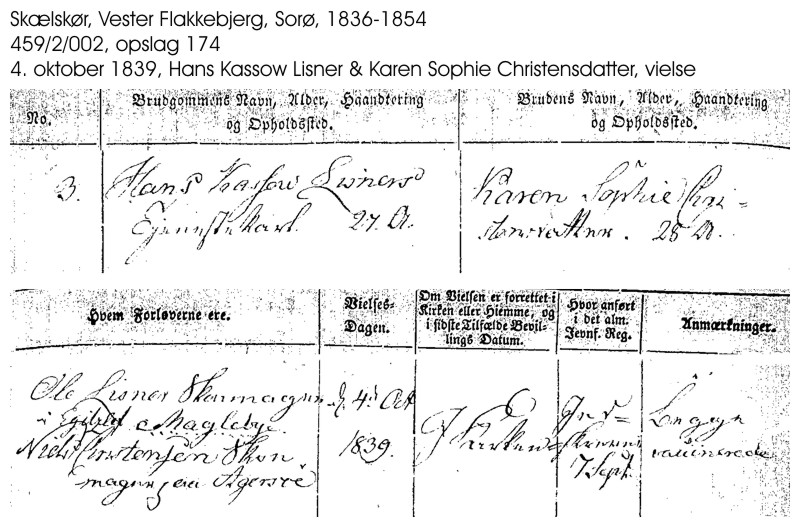 Skælskør, Vester Flakkebjerg, Sorø, 1836-1854
459/2/002, opslag 174
4. oktober 1839, Hans Kassow Lisner & Karen Sophie Christensdatter, vielse
No.
Brudgommens Navn, Alder, Haandtering
og Opholdssted.
Brudens Navn, Alder, Haandtering
og Opholdssted.
3.
Hans Kassow Lisner
Tjenestekarl 27 A.
Karen Sophie Chri=
stensdatter. 28 A.
Hvem Forloverne ere.
Vielses-
Dagen.
Om Vielsen er forrettet i
Kirken eller Hjemme, og
i sidste Tilfælde Bevil-
lings Datum.
Hvor anført
i det alm.
Jevnf. Reg.
Anmærkninger.
Ole Lisner Skoemager
i Magleby
Niels Christensen Skoe
mager paa Agersøe
d. 4de Oct
1839.
I Kirken
Ind=
7 Sept.
Begge
vaccinerede